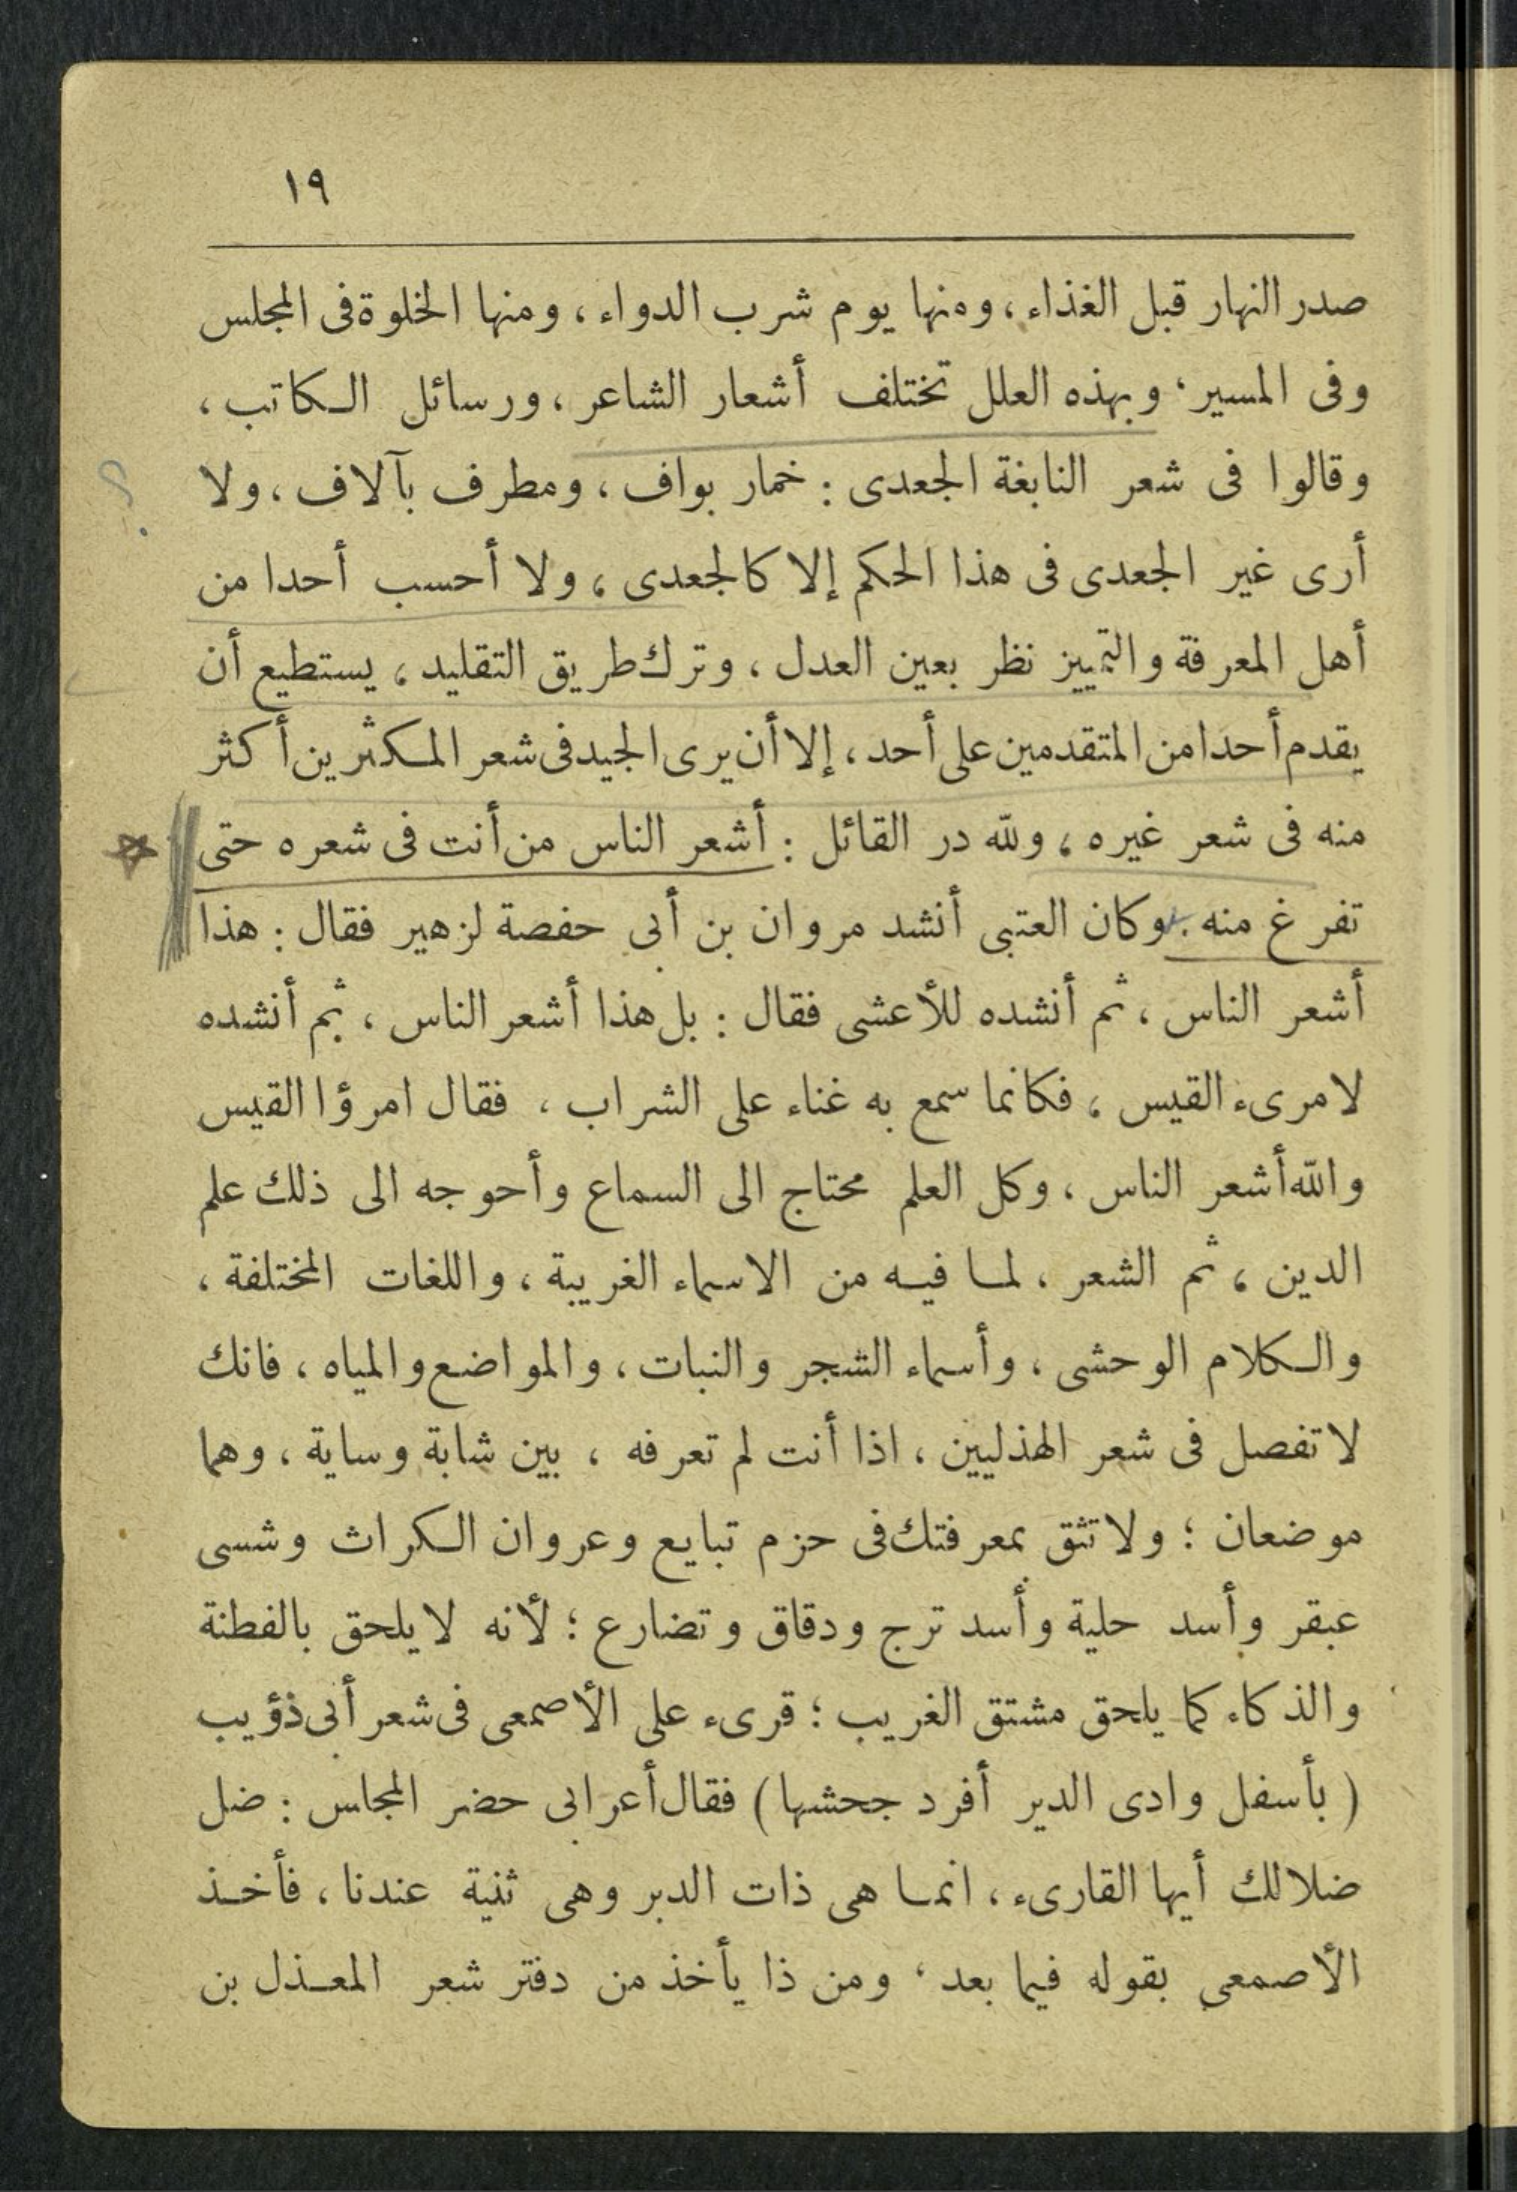 ١٩
صدر النهار قبل الغذاء ، ومنها يوم شرب الدواء ، ومنها الخلوة فى المجلس
وفى المسير ، وبهذه العلل تختلف أشعار الشاعر ، ورسائل الكاتب ،
وقالوا فى شعر النابغة الجعدى : خمار بواف ، ومطرف بآلاف ، ولا
أرى غير الجعدى فى هذا الحكم إلا كالجعدى ، ولا أحسب أحدا من
أهل المعرفة والتمييز نظر بعين العدل ، وترك طريق التقليد ، يستطيع أن
يقدم أحدا من المتقدمين على أحد ، إلا أن يرى الجيد فى شعر المكثرين أكثر
منه فى شعر غيره ، ولله در القائل : أشعر الناس من أنت فى شعره حتى
تفرغ منه . وكان العتبى أنشد مروان بن أبى حفصة لزهير فقال : هذا
أشعر الناس ، ثم أنشده للأعشى فقال : بل هذا أشعر الناس ، ثم أنشده
لامرىء القيس ، فكانما سمع به غناء على الشراب ، فقال امرؤا القيس
والله أشعر الناس ، وكل العلم محتاج الى السماع وأحوجه الى ذلك علم
الدين ، ثم الشعر ، لما فيه من الاسماء الغريبة ، واللغات المختلفة ،
والكلام الوحشى ، وأسماء الشجر والنبات ، والمواضع والمياه ، فانك
لا تفصل فى شعر الهذليين ، اذا أنت لم تعرفه ، بين شابة وساية ، وهما
موضعان ؛ ولا تثق بمعرفتك فى حزم تبايع وعروان الكراث وشسى
عبقر وأسد حلية وأسد ترج ودقاق وتضارع ؛ لأنه لا يلحق بالفطنة
والذكاء كما يلحق مشتق الغريب ؛ قرىء على الأصمعى فى شعر أبى ذؤيب
( بأسفل وادى الدير أفرد جحشها ) فقال أعرابى حضر المجاس : ضل
ضلالك أيها القارىء ، انما هى ذات الدبر وهى ثنية عندنا ، فأخذ
الأصمعى بقوله فيما بعد ، ومن ذا يأخذ من دفتر شعر المعذل بن